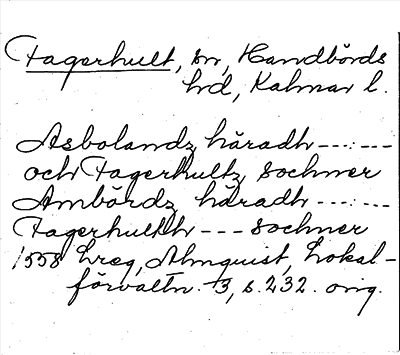 Fagerhult, sn, Handbörds
hrd, Kalmar l.
Asbolandz häradh --- : ---
och Fagerhultz sochner
Ambördz häradh --- : ---
Fagerhultth --- sochner
1558 Lreg, Almquist, Lokal-
förvaltn. 3, s. 232. orig.